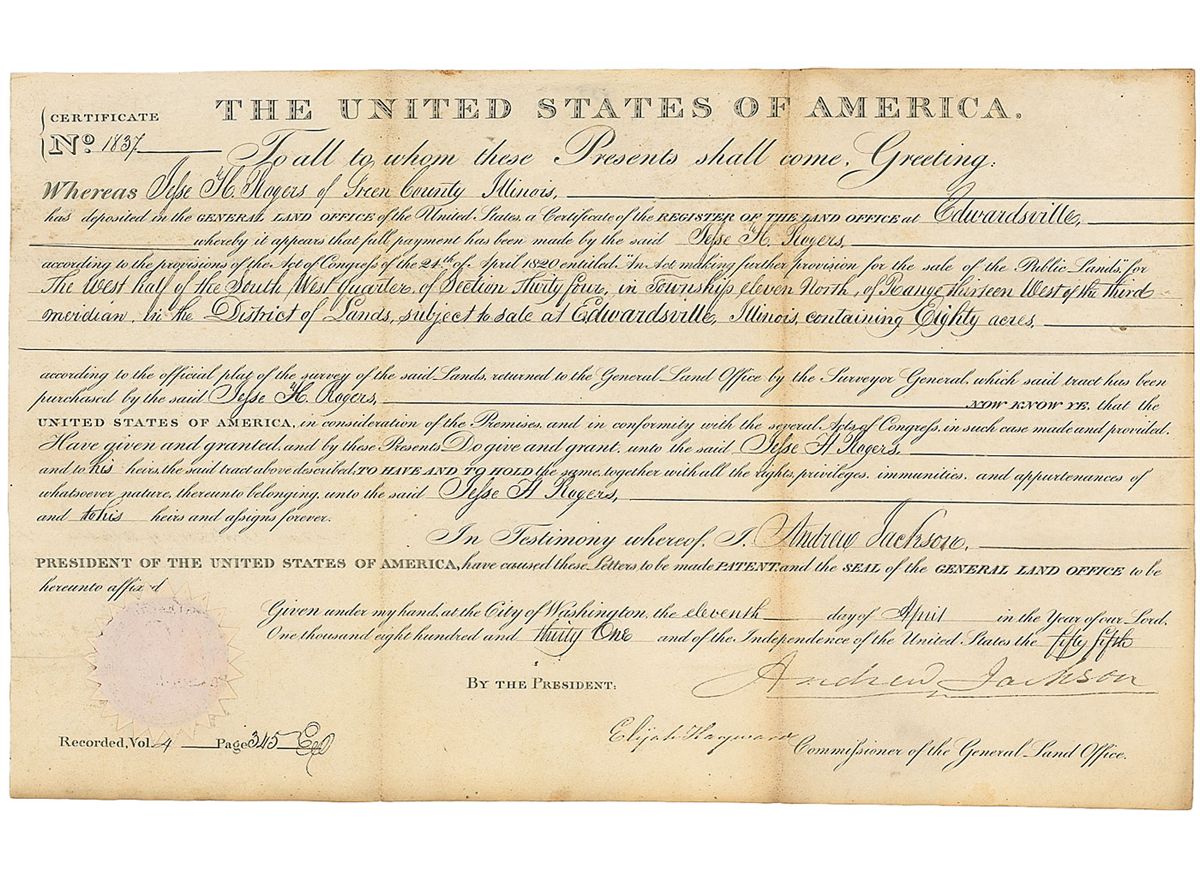 THE UNITED STATES OF AMERICA.
CERTIFICATE
No. 1837
To all to whom these Presents shall come, Greeting:
Whereas Jesse H. Rogers of Green County Illinois,
has deposited in the GENERAL LAND OFFICE of the United States, a Certificate of the REGISTER OF THE LAND OFFICE at Edwardsville,
whereby it appears that full payment has been made by the said Jesse H. Rogers
according to the provisions of the Act of Congress of the 24th of April 1820 entitled "An Act making further provision for the sale of the Public Lands," for
The West half of the South West quarter, of Section Thirty four, in Township eleven North, of Range thirteen West of the third
meridian, in the District of Lands, subject to sale at Edwardsville, Illinois, containing Eighty acres,
according to the official plat of the survey of the said Lands, returned to the General Land Office by the Surveyor General, which said tract has been
purchased by the said Jesse H. Rogers, NOW KNOW YE, that the
UNITED STATES OF AMERICA, in consideration of the Premises, and in conformity with the several Acts of Congress, in such case made and provided,
Have given and granted, and by these Presents Do give and grant, unto the said Jesse H Rogers,
and to his heirs, the said tract above described, TO HAVE AND TO HOLD the same, together with all the rights, privileges, immunities, and appurtenances of
whatsoever nature, thereunto belonging, unto the said Jesse H Rogers,
and to his heirs and assigns forever.
In Testimony whereof, I, Andrew Jackson,
PRESIDENT OF THE UNITED STATES OF AMERICA, have caused these Letters to be made PATENT, and the SEAL of the GENERAL LAND OFFICE to be
hereunto affixed
Given under my hand, at the City of Washington, the eleventh day of April in the Year of our Lord,
One thousand eight hundred and thirty One and of the Independence of the United States the fifty fifth
BY THE PRESIDENT: Andrew Jackson
Elijah Hayward Commissioner of the General Land Office.
Recorded, Vol. 4 Page 345